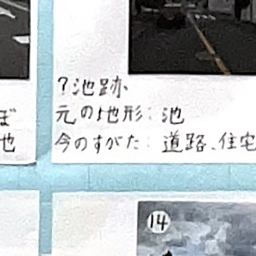 ?池跡
元の地形：池
今のすがた：道路、住宅
ぼ
也
⑭